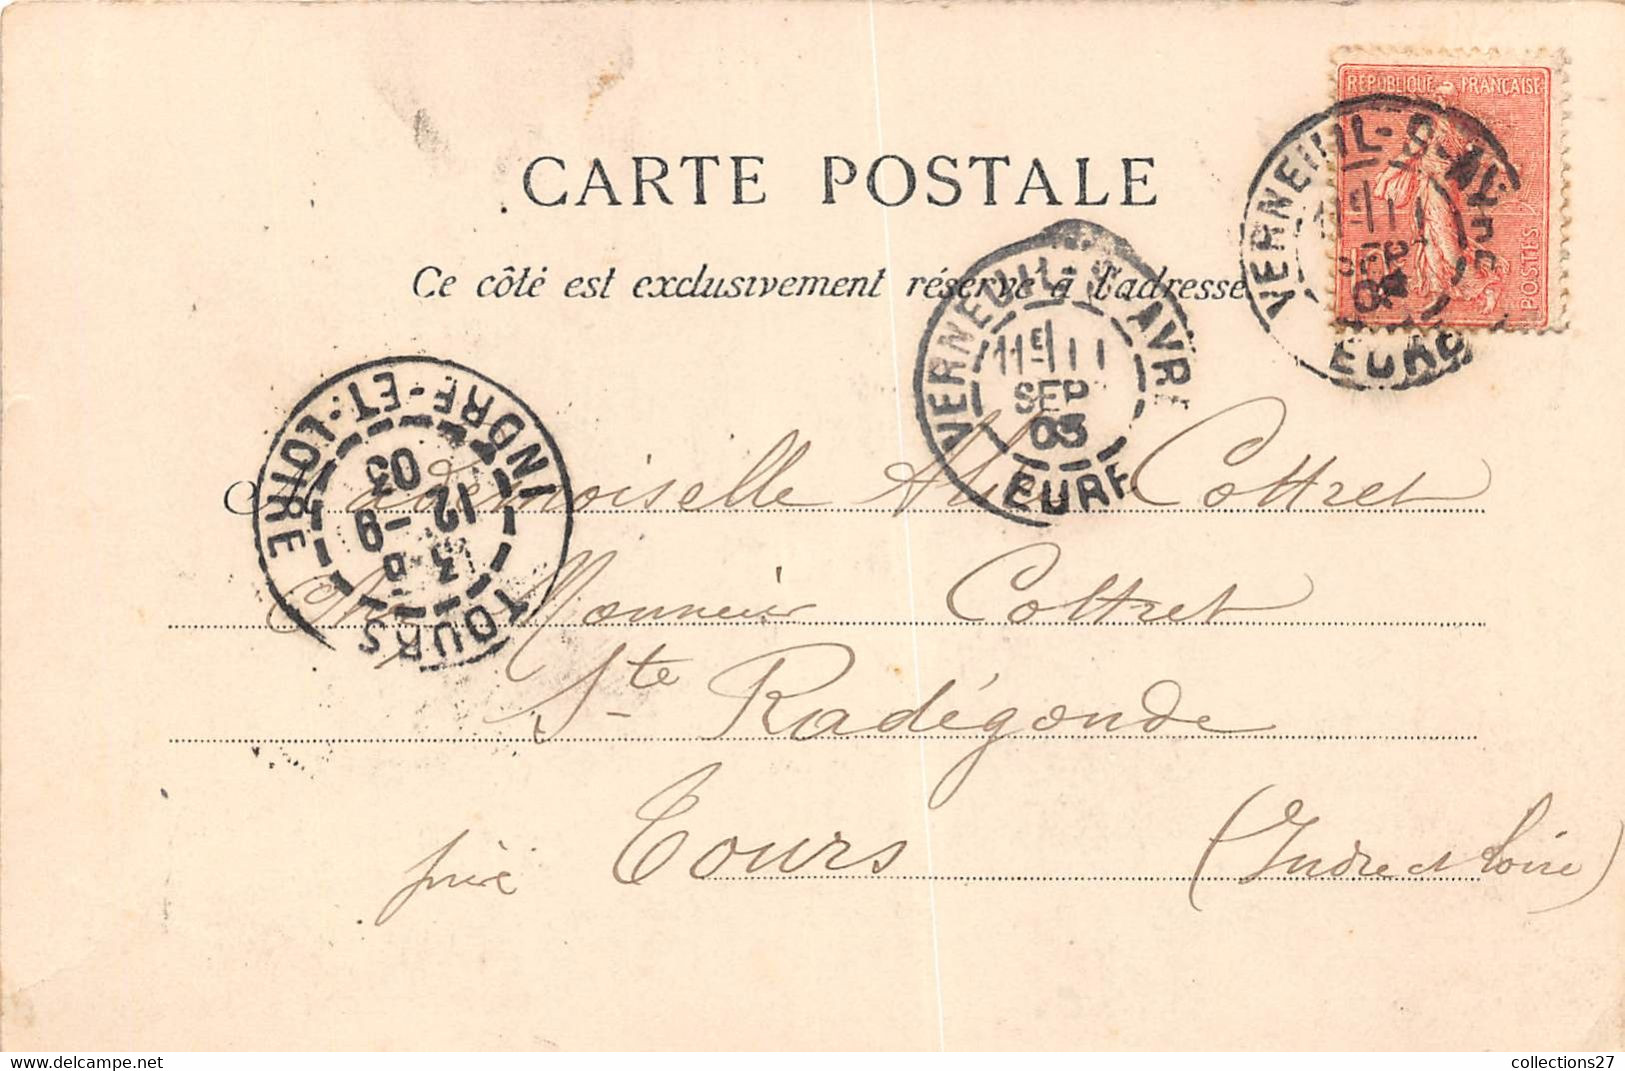 RÉPUBLIQUE FRANÇAISE
POSTES
VERNEUIL-S-AVRE
11E 11
SEP
03
EURE
CARTE POSTALE
Ce côté est exclusivement réservé à l'adresse
VERNEUIL-S-AVRE
11E 11
SEP
03
EURE
TOURS
3
12 -9
03
INDRE-ET-LOIRE
Mademoiselle Cottret
Chez Monsieur Cottret
Ste Radégonde
près Tours (Indre et Loire)
collections27